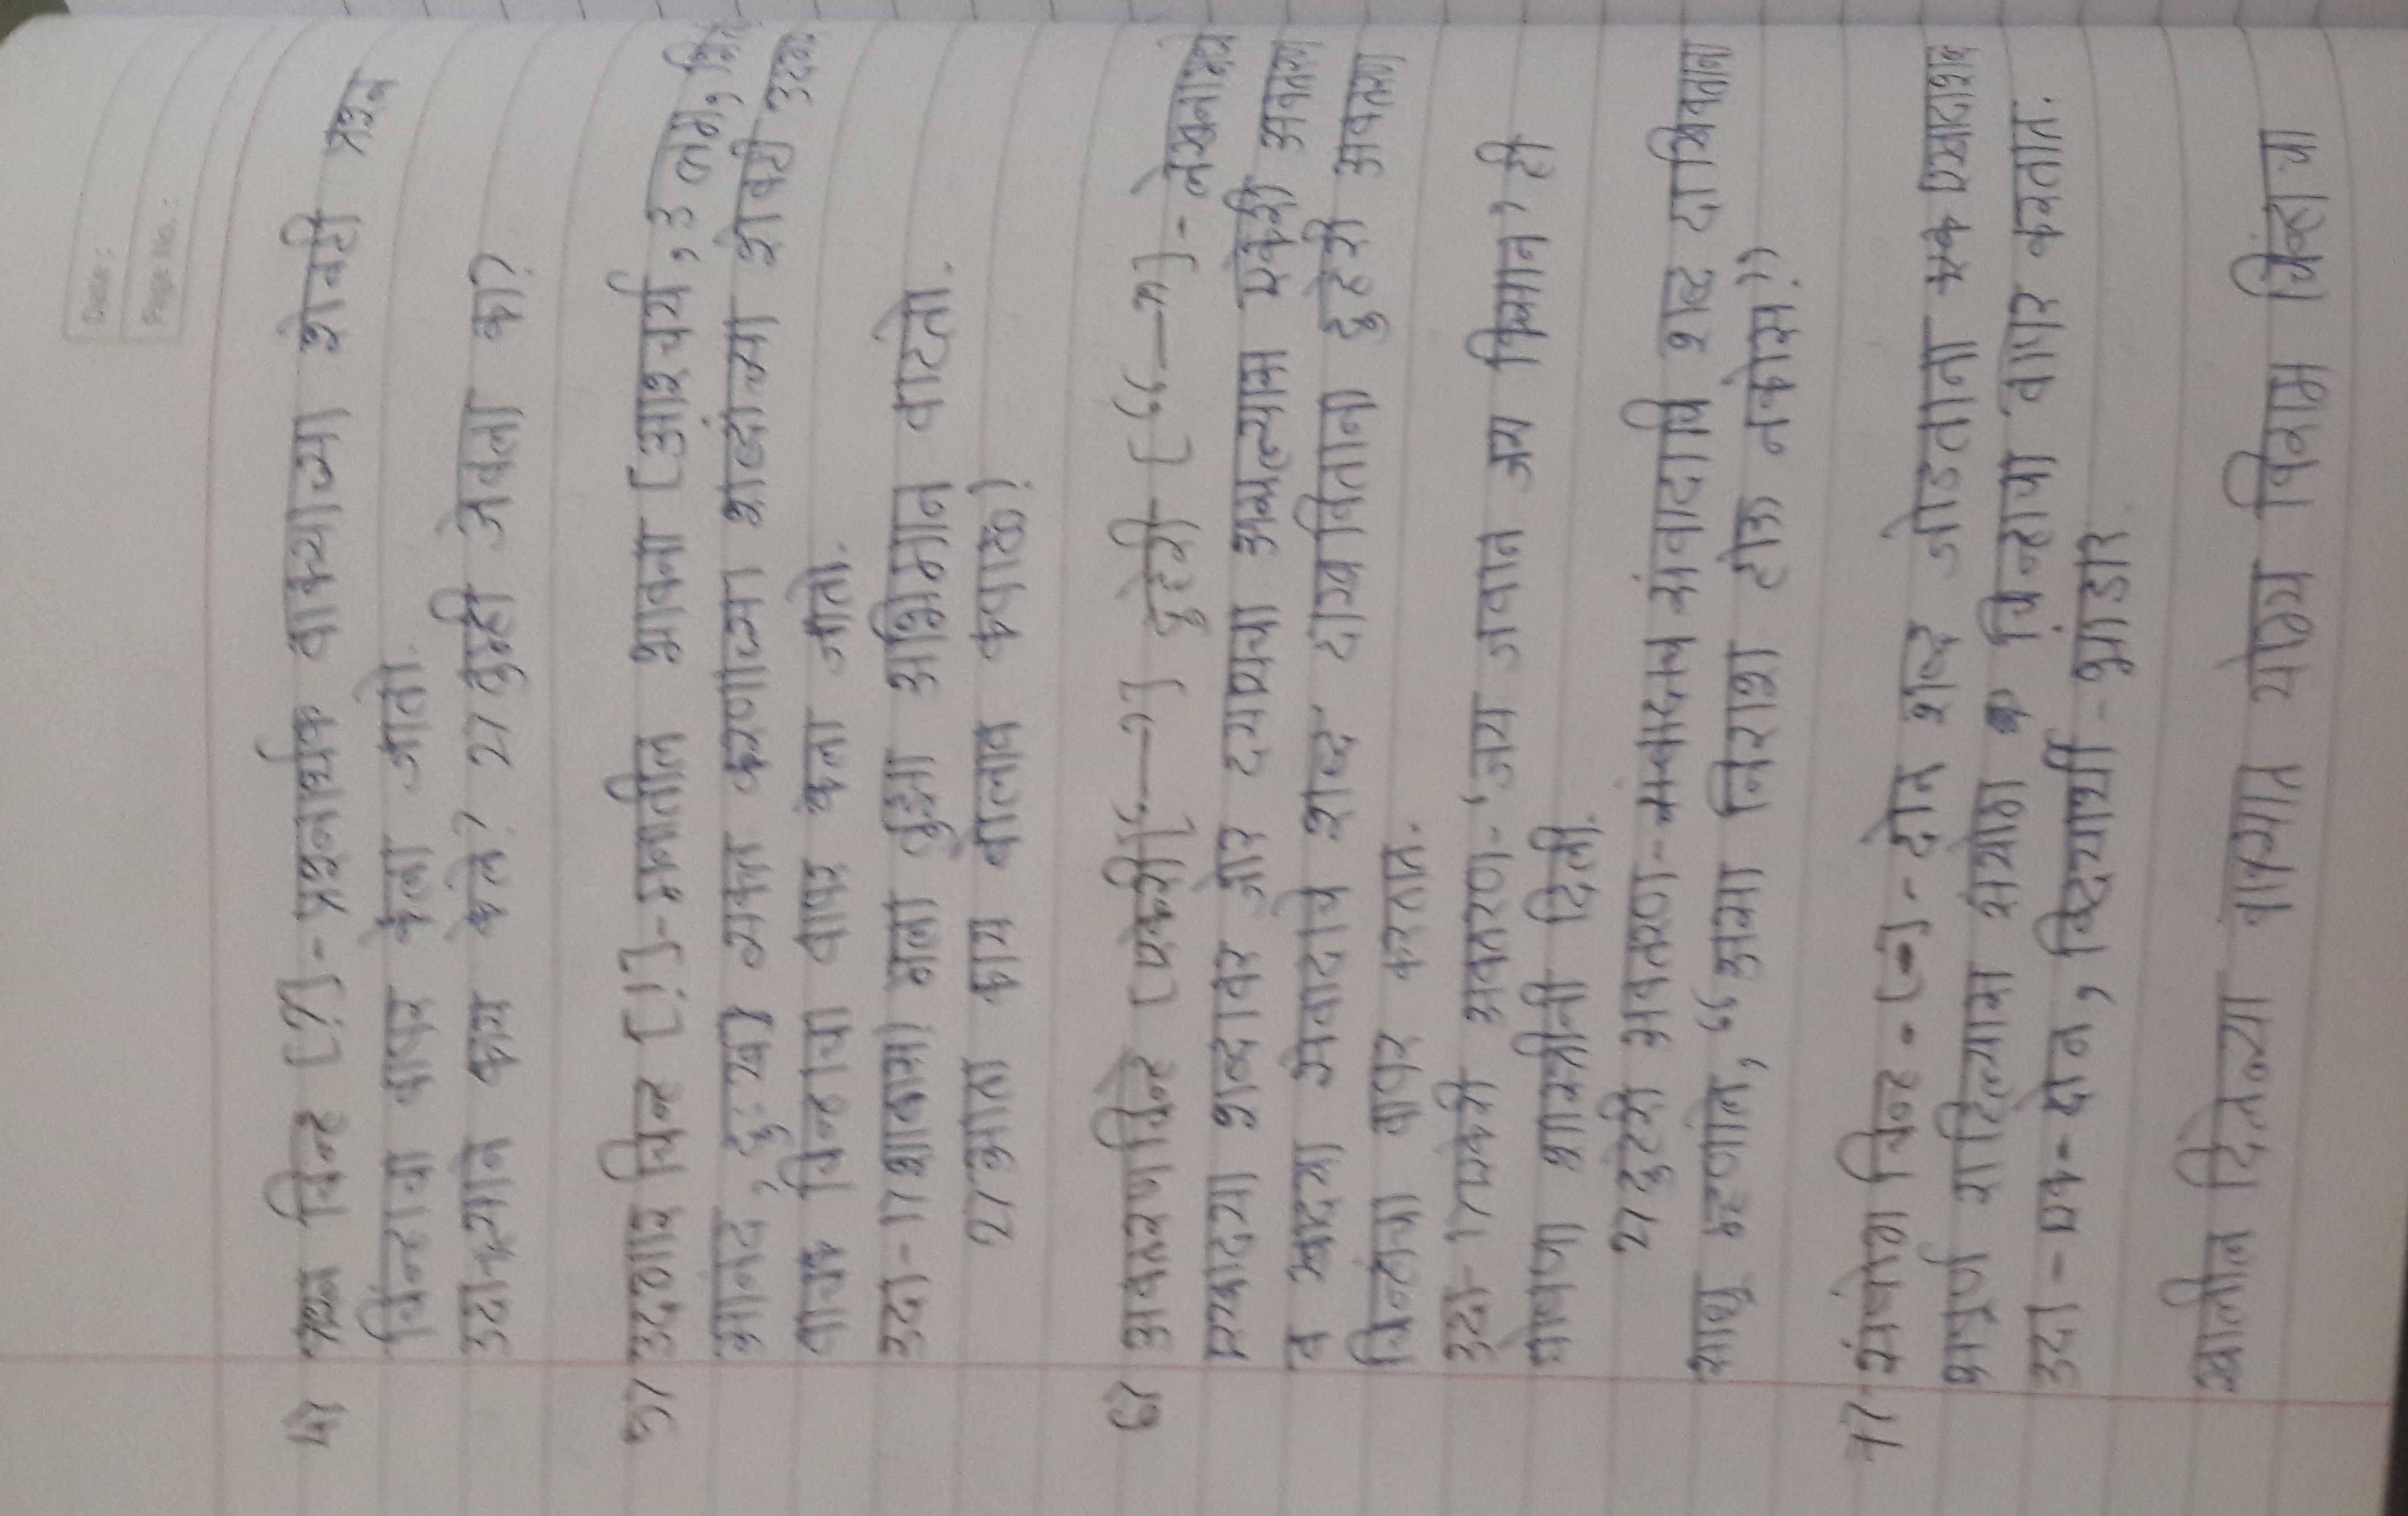 Date :
Page No. :
4) प्रश्न चिन्ह [?] - प्रश्नार्थक वाक्याच्या शेवटी प्रश्न
चिन्हाचा वापर केला जातो.
उदा - त्याने काय केले? 2) तुम्ही जेवला का?
5) उद्गार चिन्ह [!] - मनातील भावना [आश्चर्य,
आनंद, दुःख] व्यक्त करणाऱ्या शब्दांच्या शेवटी उद्गार
वाचक चिन्हाचा वापर केला जातो.
उदा - 1) शाबास! मला तुझा अभिमान वाटतो.
2) आता काय बोलावं कपाळ!
6) अवतरण चिन्हे [एकेरी ['—'] दुहेरी - ["—"] - लेखनामध्ये
एखाद्या शब्दावर जोर द्यायचा असल्यास एकेरी अवतरण
व एखाद्या संवादाचे शब्द दाखविताना दुहेरी अवतरण
चिन्हांचा वापर करतात.
उदा - 1) एकेरी अवतरण - 'जय जवान जय किसान' ही
घोषणा शास्त्रीनी दिली.
2) दुहेरी अवतरण - संवादाचे शब्द दाखविताना
साधू म्हणाले, "असा निराश होऊ नकोस!"
7) संयोग चिन्ह - [-] - दोन शब्द जोडताना एक एखादाशब्द
अपूर्ण राहिल्यास संयोग चिन्हाचा वापर करतात.
उदा - एक - दोन, विद्यार्थी - भांडार.
खालील दिलेल्या वाक्यात योग्य विराम चिन्हांचा